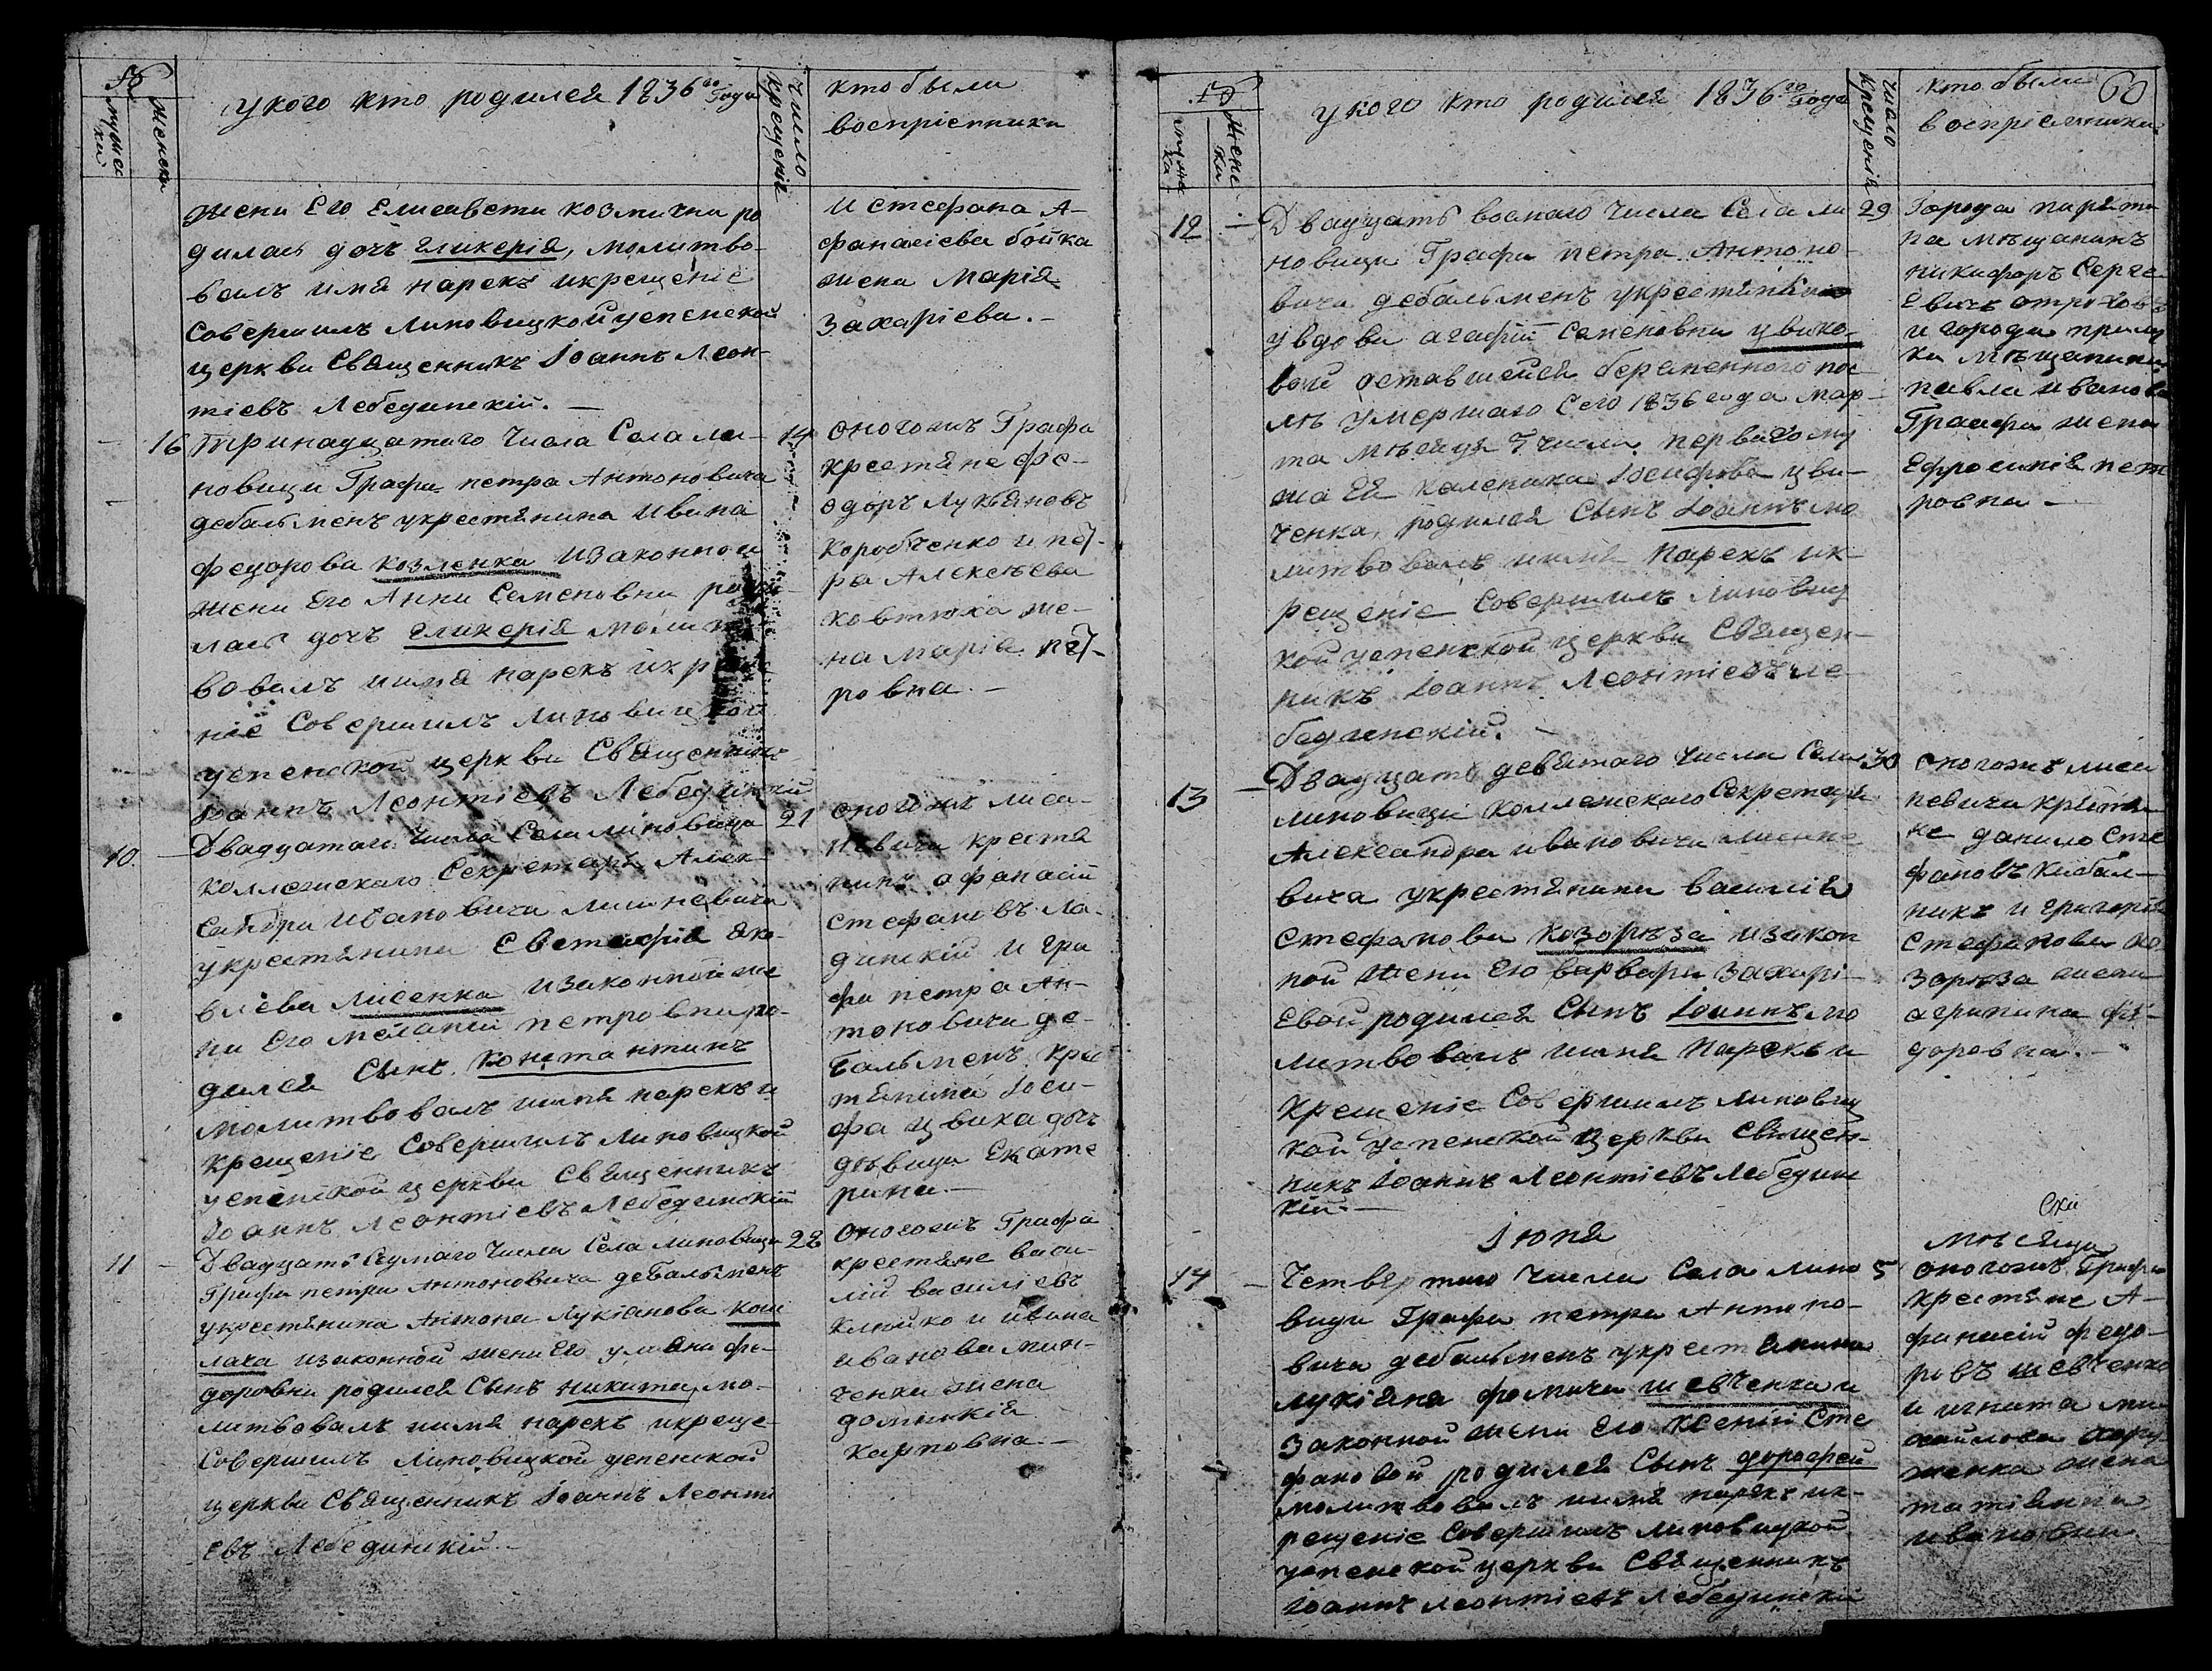 №
мужес
кій
женски
у кого кто родился 1836го Года
число
крещенія
кто были
воспріемники
жени Его Елисавети козмични ро
дилась дочъ гликерія, молитво-
валъ имя нарекъ икрещеніе
Совершилъ Липовицкой успенской
церкви Священникъ Іоаннъ Леон-
тіевъ Лебединскій. —
И стефана А-
фанасіева бойка
жена Марія
Захаріева. —
16
тринадцатого Числа Села ли-
новици Графа петра Антоновича
дебальменъ укрестянина Ивана
федорова козленка изаконной
жени Его Анни Семеновни роди-
лась дочъ гликерія молит
вовалъ имя нарекъ икрещ
ніе Совершилъ Липовицкой
успенской церкви Священникъ
Іоаннъ Леонтіевъ Лебединскій
14
оногожъ Графа
крестяне фе-
одоръ Лукьяновъ
Коробченко и пет-
ра Алексѣева
ковтюха же-
на Марія пет-
ровна. —
10.
Двадцатаго Числа Села линовици
коллежскаго Секретаря Алек-
сандра Ивановича лисаневича
укрестянина Евстафія Яко-
влева лисенка изаконной же
ни Его меланіи петровни ро-
дился Сынъ Константинъ
молитвовалъ имя нарекъ и
крещеніе Совершилъ Липовицкой
успенской церкви Священникъ
Іоаннъ Леонтіевъ Лебединскій
21
оногожъ лиса-
невича крестя
нинъ афанасій
стефановъ Ла-
динскій и гра
фа петра Ан-
тоновича де-
бальменъ крес
тянина Іоси-
фа цвика дочъ
дѣвица Екате
рина. —
11
Двадцать Седмаго Числа Села линовици
Графа петра Антоновича дебальменъ
укрестянина Антона Лукіанова кош
лача изаконной жени Его уліяни фе-
доровни родился Сынъ никита, мо-
литвовалъ имя нарекъ икреще-
Совершилъ Липовицкой успенской
церкви Священникъ Іоаннъ Леонті
евъ Лебединскій. —
28
оногожъ Графа
крестяне васи-
лій василіевъ
клюйко и ивана
иванова мин-
ченка жена
домникія
карповна. —
№.
мужес
ка
Женс
ка
у кого кто родился 1836го Года
число
крещенія
кто были
воспріемники
60
12
Двадцать восмаго Числа Села ли
новици Графа петра Антоно-
вича дебальменъ укрестянки
увдови агафіи Семеновни цвико-
вой оставшейся беременного пос-
лѣ умершаго Сего 1836 года Мар-
та мѣсяца 7 числа перваго му
жа Ея каленика Іосифова цви-
ченка, родился Сынъ Іоаннъ мо
литвовалъ имя нарекъ ик-
рещеніе Совершилъ Липовиц
кой успенской церкви Священ-
никъ Іоаннъ Леонтіевъ ле-
бединскій. —
29
Города пиряти
на мѣщанинъ
никифоръ Серге
Евичъ
и города прилу
ки мѣщанина
павла иванова
Граифа жена
Ефросинія пет
ровна —
13
Двадцать девятаго Числа Села
линовици коллежскаго Секретаря
Александра ивановича лисане
вича укрестянина василія
стефанова козорѣза изакон
ной жени Его варвари Захарі-
евой родился Сынъ Іоаннъ мо
литвовалъ имя нарекъ и
крещеніе Совершилъ Липовиц
кой успенской церкви Священ-
никъ Іоаннъ Леонтіевъ Лебедин
кій. —
30
оногожъ лиса
невича крестя
не данило сте
фановъ кибал-
никъ и григорія
стефанова ко
зорѣза жена
агрипина фе-
доровна. —
Іюня
мѣсяца
14
Четвертаго Числа Села лино
вици Графа петра Антоно-
вича дебальменъ укрестянина
лукіяна фомича шевченка и
законной жени его ксеніи сте
фановой родился Сынъ дорофей
молитвовалъ имя нарекъ ик-
рещеніе Совершилъ Липовицкой
успенской церкви Священникъ
Іоаннъ Леонтіевъ Лебединскій
5
оногожъ Графа
крестяне А-
фанасій федо-
ровъ шевченко
и игната ми
хайлова
женка жена
татіянна
ивановна